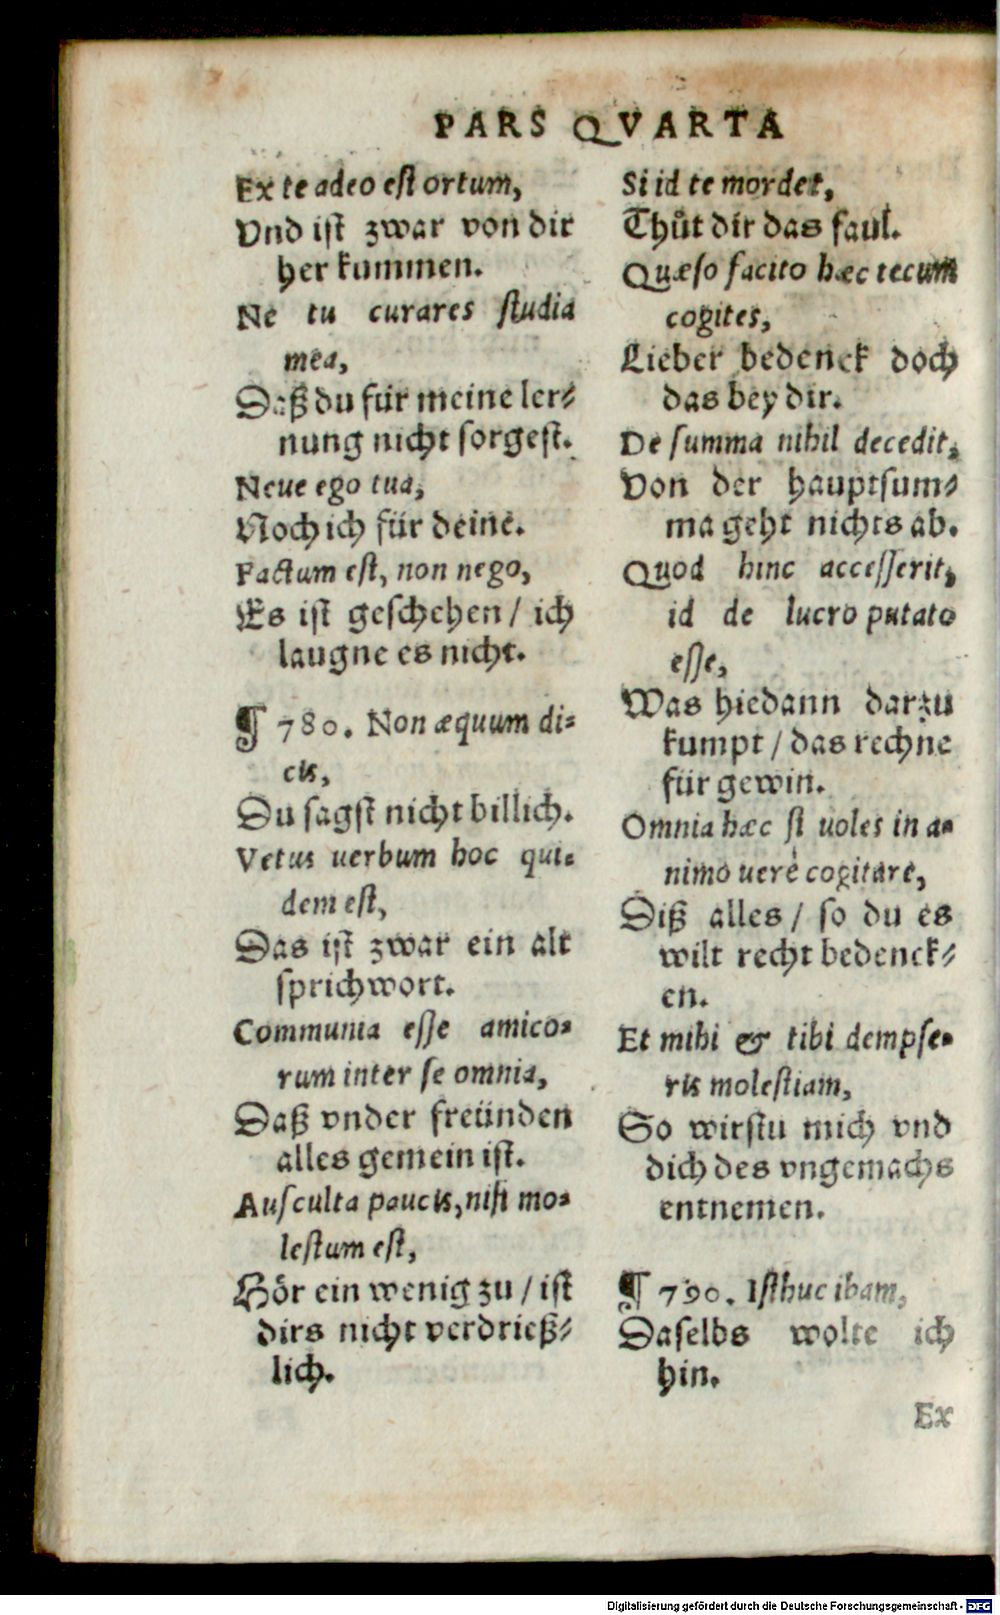 PARS QVARTA
Ex te adeo est ortum,
Vnd ist zwar von dir
her kummen.
Ne tu curares studia
mea,
Daß du für meine ler⸗
nung nicht sorgest.
Neue ego tua,
Noch ich für deine.
Factum est, non nego,
Es ist geschehen / ich
laugne es nicht.
¶ 780. Non æquum di⸗
cis,
Du sagst nicht billich.
Vetus uerbum hoc qui⸗
dem est,
Das ist zwar ein alt
sprichwort.
Communia esse amico⸗
rum inter se omnia,
Daß vnder freünden
alles gemein ist.
Ausculta paucis, nisi mo⸗
lestum est,
Hör ein wenig zu / ist
dirs nicht verdrieß⸗
lich.
Si id te mordet,
Thůt dir das faul.
Quæso facito hæc tecum
cogites,
Lieber bedenck doch
das bey dir.
De summa nihil decedit,
Von der hauptsum⸗
ma geht nichts ab.
Quod hinc accesserit,
id de lucro putato
esse,
Was hiedann darzu
kumpt / das rechne
für gewin.
Omnia hæc si uoles in a⸗
nimo uerè cogitare,
Diß alles / so du es
wilt recht bedenck⸗
en.
Et mihi & tibi dempse⸗
ris molestiam,
So wirstu mich vnd
dich des vngemachs
entnemen.
¶ 790. Isthuc ibam,
Daselbs wolte ich
hin.
Ex
Digitalisierung gefördert durch die Deutsche Forschungsgemeinschaft - DFG